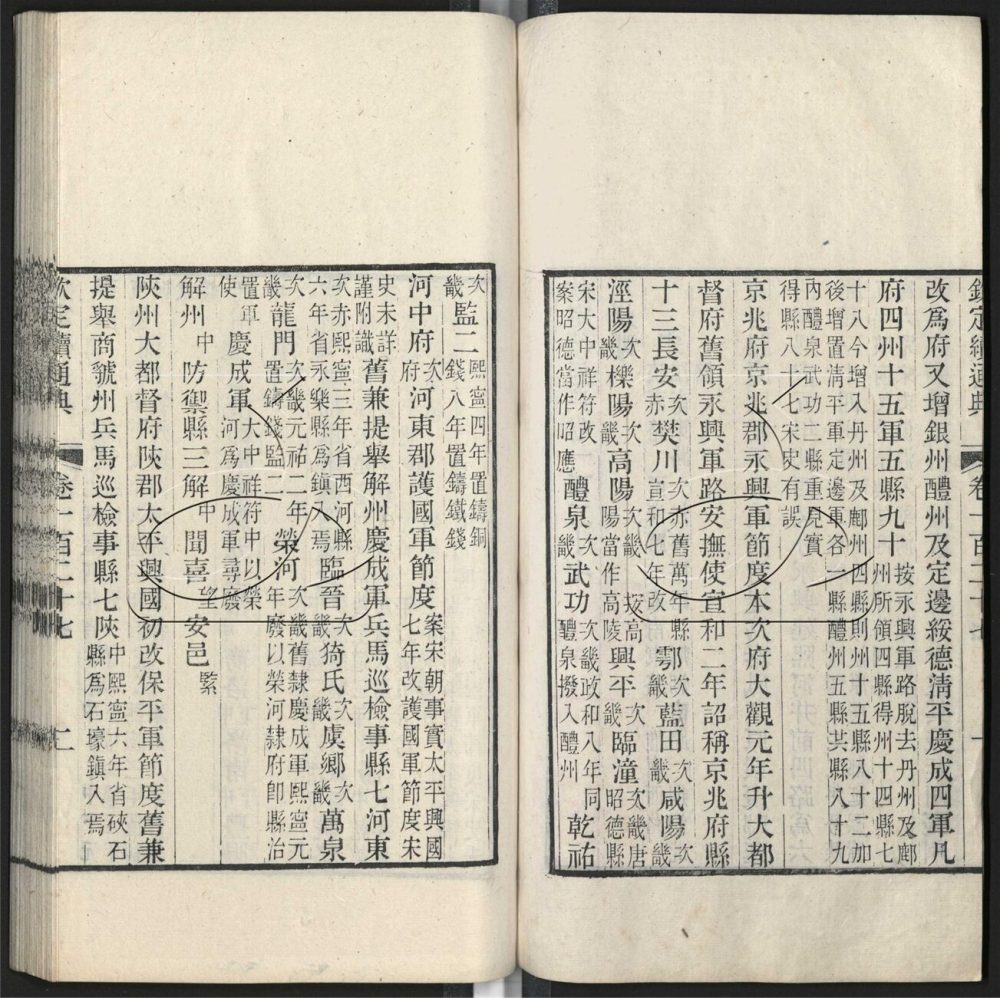 欽定續通典 卷一百二十七 一
改爲府又增銀州醴州及定邊綏德清平慶成四軍凡
府四州十五軍五縣九十按永興軍路脫去丹州及鄜州所領四縣得州十四縣七
十八今增入丹州及鄜州四縣則州十五縣八十二加後增置清平軍定邊軍各一縣醴州五縣共縣八十九
內醴泉武功二縣重見實得縣八十七宋史有誤
京兆府京兆郡永興軍節度本次府大觀元年升大都
督府舊領永興軍路安撫使宣和二年詔稱京兆府縣
十三長安次赤樊川次赤舊萬年縣宣和七年改鄠次畿藍田次畿咸陽次畿
涇陽次畿櫟陽次畿高陽次畿按高陽當作高陵興平次畿臨潼次畿唐昭德縣
宋大中祥符改案昭德當作昭應醴泉次畿武功次畿政和八年同醴泉撥入醴州乾祐
次畿監二熙寧四年置鑄銅錢八年置鑄鐵錢
河中府次府河東郡護國軍節度案宋朝事實太平興國七年改護國軍節度宋
史未詳謹附識舊兼提舉解州慶成軍兵馬巡檢事縣七河東
次赤熙寧三年省西河縣六年省永樂縣爲鎮入焉臨晉次畿猗氏次畿虞鄉次畿萬泉
次畿龍門次畿元祐二年置鑄錢監二榮河次畿舊隸慶成軍熙寧元年廢以榮河隸府卽縣治
置軍使慶成軍大中祥符中以榮河爲慶成軍尋廢
解州中防禦縣三解中聞喜望安邑緊
陝州大都督府陝郡太平興國初改保平軍節度舊兼
提舉商虢州兵馬巡檢事縣七陝中熙寧六年省硤石縣爲石壕鎮入焉
欽定續通典 卷一百二十七 二